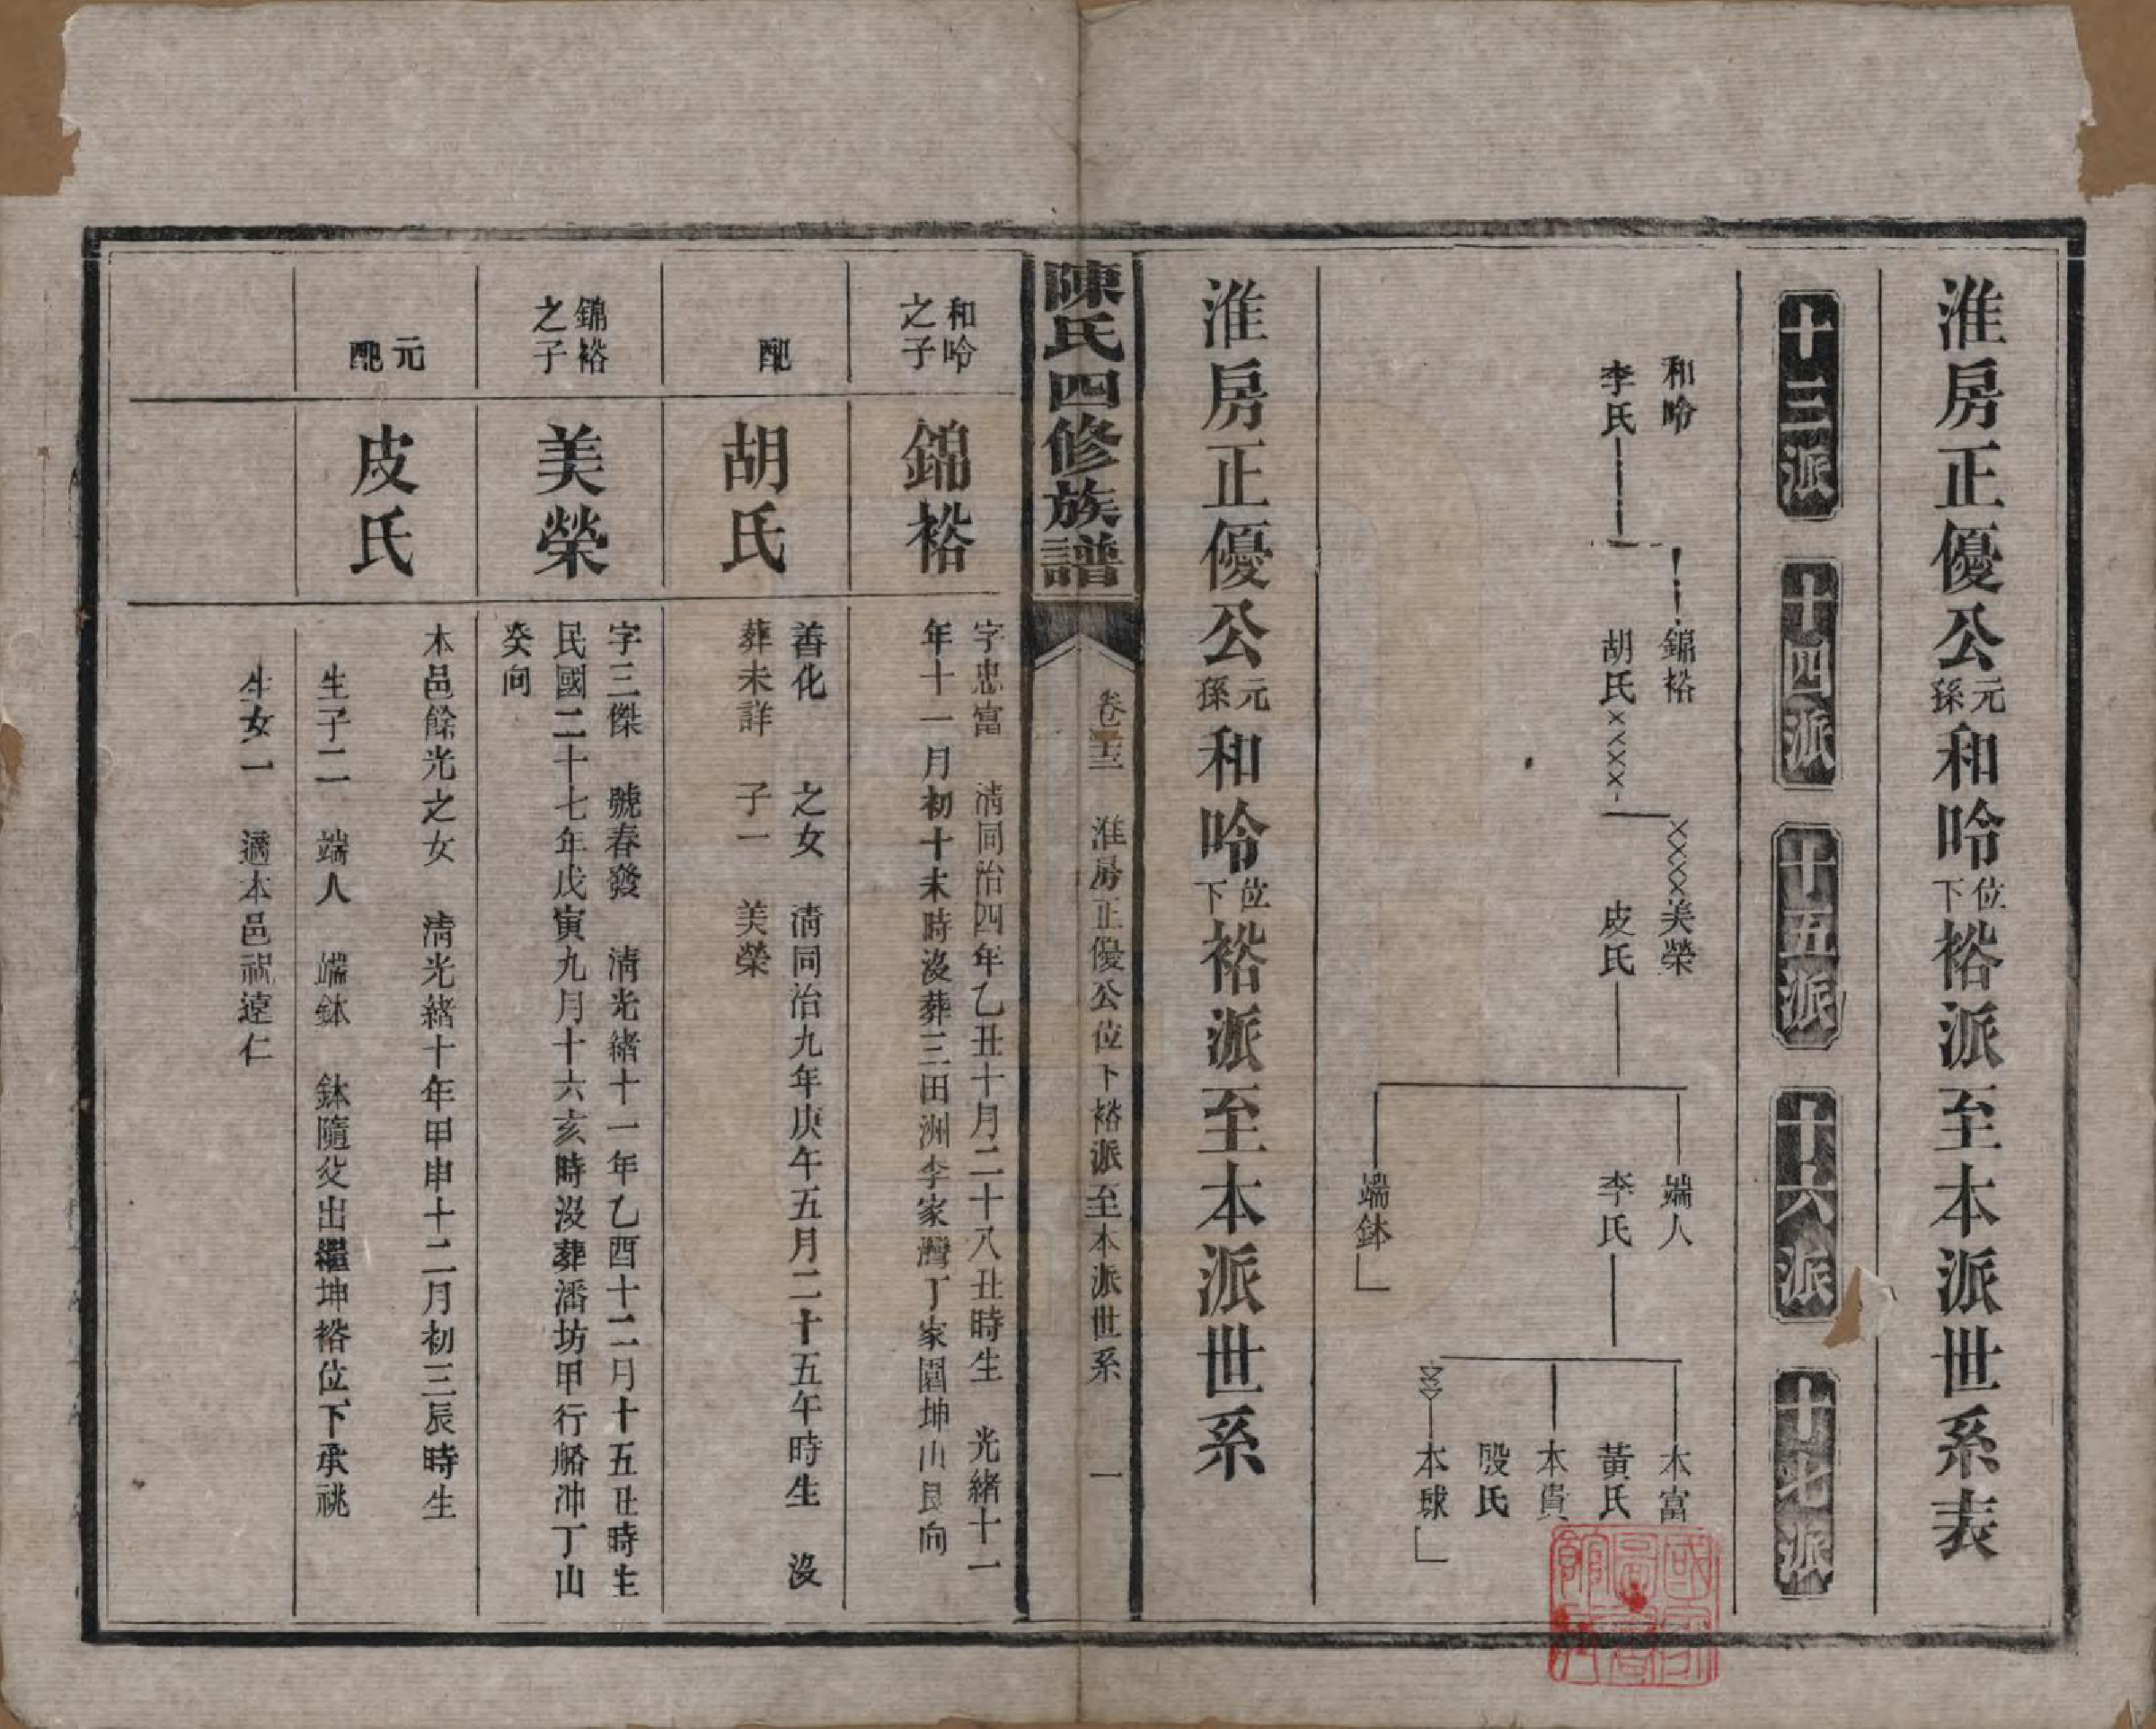 淮房正優公元孫和唥位下裕派至本派世系表
十三派
十四派
十五派
十六派
十七派
和唥
李氏
錦裕
胡氏
美榮
皮氏
端人
李氏
端鉢
本富
黃氏
本貴
殷氏
本球
淮房正優公元孫和唥位下裕派至本派世系
陳氏四修族譜
淮房正優公位下裕派至本派世系
一
和唥之子
錦裕
字忠富 淸同治四年乙丑十月二十八丑時生 光緖十一
年十一月初十未時沒葬三田洲李家灣丁家園坤山艮向
配
胡氏
善化 之女 淸同治九年庚午五月二十五午時生 沒
葬未詳 子一 美榮
錦裕之子
美榮
字三傑 號春發 淸光緖十一年乙酉十二月十五丑時生
民國二十七年戊寅九月十六亥時沒葬潘坊甲行路冲丁山
癸向
元配
皮氏
本邑餘光之女 淸光緖十年甲申十二月初三辰時生
生子二 端人 端鉢 鉢隨父出繼坤裕位下承祧
生女一 適本邑祝遠仁